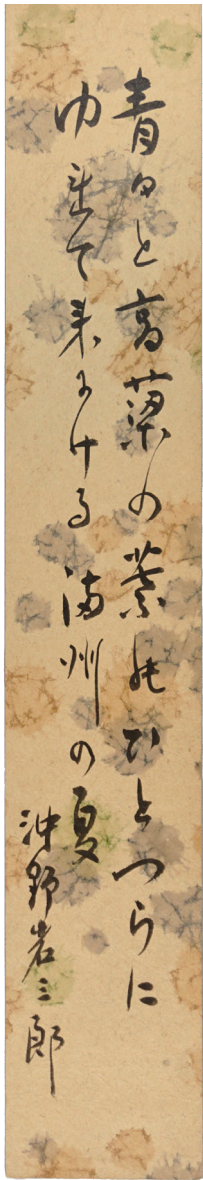 青々と高粱の葉のひとつらに
ゆれて来にける満州の夏
沖野岩三郎